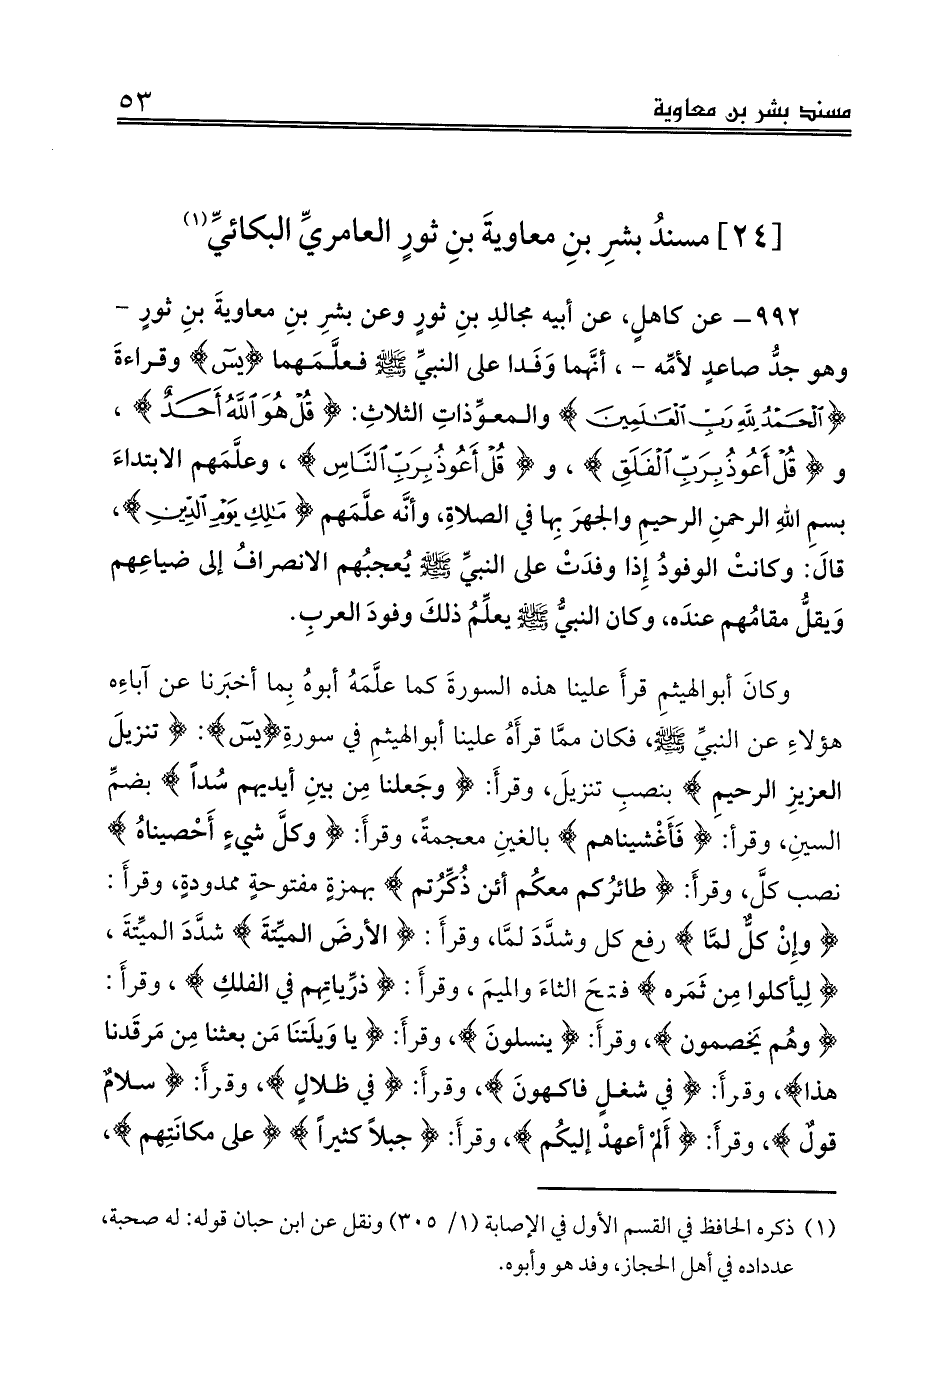 مسند بشر بن معاوية
٥٣
[٢٤] مسندُ بشرِ بنِ معاويةَ بنِ ثورٍ العامريِّ البكائيِّ(١)
٩٩٢- عن كاهلٍ، عن أبيه مجالدِ بنِ ثورٍ وعن بشرِ بنِ معاويةَ بنِ ثورٍ -
وهو جدُّ صاعدٍ لأمِّه - ، أنَّهما وَفَدا على النبيِّ ﷺ فعلَّمَهما ﴿يسٓ﴾ وقراءةَ
﴿ٱلْحَمْدُ لِلَّهِ رَبِّ ٱلْعَٰلَمِينَ﴾ والمعوِّذاتِ الثلاثِ: ﴿قُلْ هُوَ ٱللَّهُ أَحَدٌ﴾ ،
و ﴿قُلْ أَعُوذُ بِرَبِّ ٱلْفَلَقِ﴾ ، و ﴿قُلْ أَعُوذُ بِرَبِّ النَّاسِ﴾ ، وعلَّمَهم الابتداءَ
بسمِ اللهِ الرحمنِ الرحيمِ والجهرَ بِها في الصلاةِ، وأنَّه علَّمَهم ﴿مَٰلِكِ يَوْمِ ٱلدِّينِ﴾،
قالَ: وكانتْ الوفودُ إذا وفدَتْ على النبيِّ ﷺ يُعجبُهم الانصرافُ إلى ضياعِهم
وَيقلُّ مقامُهم عندَه، وكان النبيُّ ﷺ يعلِّمُ ذلكَ وفودَ العربِ.
وكانَ أبوالهيثمِ قرأَ علينا هذه السورةَ كما علَّمَهُ أبوهُ بِما أخبَرنا عن آباءِه
هؤلاءِ عن النبيِّ ﷺ، فكان ممَّا قرأَهُ علينا أبوالهيثمِ في سورةِ﴿يسٓ﴾: ﴿ تنزيلَ
العزيزِ الرحيمِ ﴾ بنصبِ تنزيلَ، وقرأَ: ﴿ وجَعلنا مِن بينِ أيديهم سُداً ﴾ بضمِّ
السينِ، وقرأَ: ﴿ فَأَغْشيناهم ﴾ بالغينِ معجمةً، وقرأَ: ﴿ وكلَّ شيءٍ أَحْصيناهُ ﴾
نصب كلَّ، وقرأَ: ﴿ طائرُكم معكُم أئن ذُكِّرتم ﴾ بهمزةٍ مفتوحةٍ ممدودةٍ، وقرأَ :
﴿ وإنْ كلٌّ لمَّا ﴾ رفع كل وشدَّدَ لمَّا، وقرأَ : ﴿ الأرضَ الميِّتةَ ﴾ شدَّدَ الميِّتةَ ،
﴿ لِيأكلوا مِن ثَمَره ﴾ فتحَ الثاءَ والميمَ ، وقرأَ : ﴿ ذرِّياتِهم في الفلكِ ﴾ ، وقرأَ :
﴿ وهُم يَخصمون ﴾، وقرأَ: ﴿ ينسلونَ ﴾، وقرأَ: ﴿ يا وَيلَتنَا مَن بعثنا مِن مَرقَدنا
هذا﴾، وقرأَ: ﴿ في شغلٍ فاكهونَ ﴾، وقرأَ: ﴿ في ظلالٍ ﴾، وقرأَ: ﴿ سلامٌ
قولٌ ﴾، وقرأَ: ﴿ ألمْ أعهدْ إليكُم ﴾، وقرأَ: ﴿ جبلاً كثيراً ﴾ ﴿ على مكانَتِهم ﴾،
(١) ذكره الحافظ في القسم الأول في الإصابة (١/ ٣٠٥) ونقل عن ابن حبان قوله: له صحبة،
عدداده في أهل الحجاز، وفد هو وأبوه.